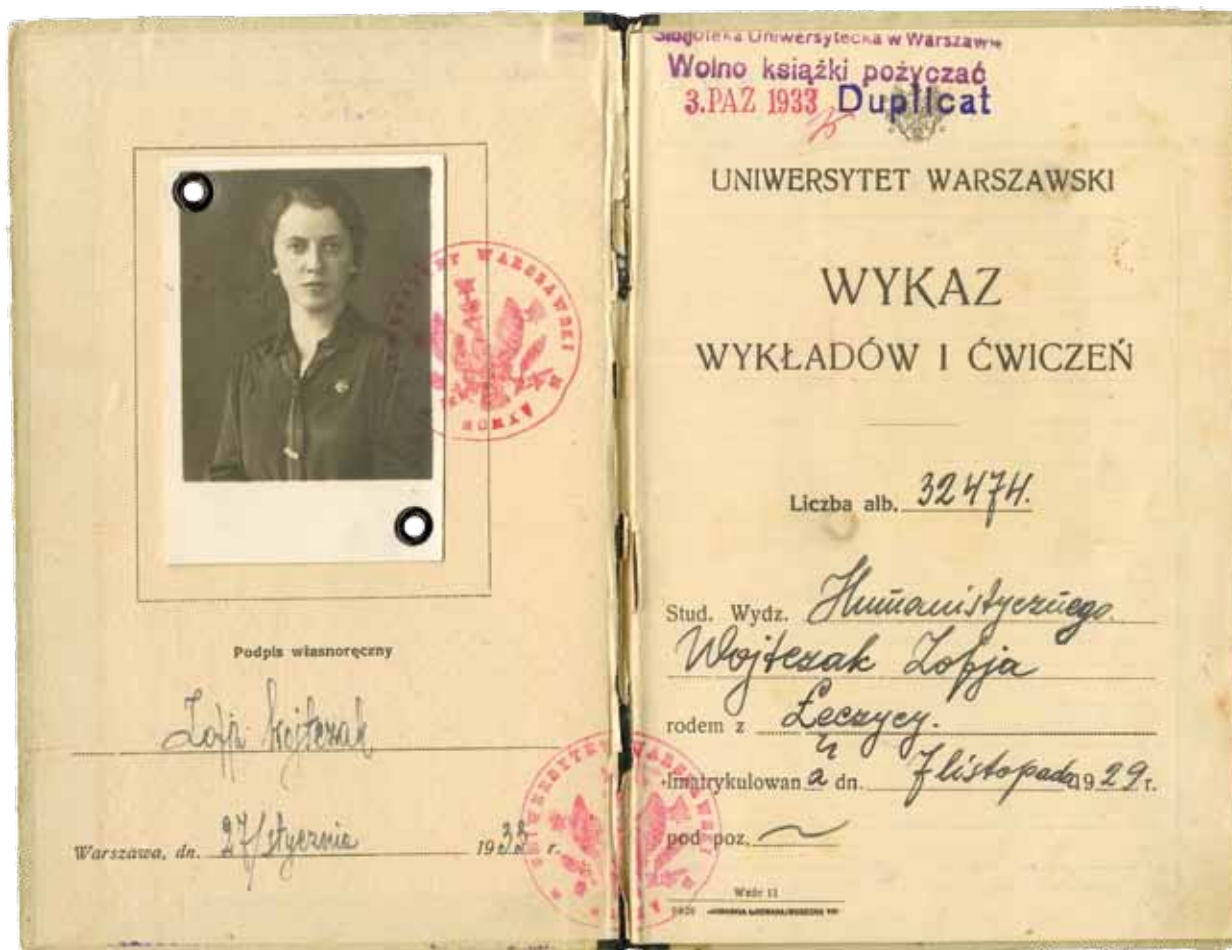 Podpis własnoręczny
Zofja Wojtczak
Warszawa, dn. 27/stycznia 1933 r.
UNIWERSYTET WARSZAWSKI
Biblioteka Uniwersytecka w Warszawie
Wolno książki pożyczać
3. PAŹ 1933 Duplicat
UNIWERSYTET WARSZAWSKI
WYKAZ
WYKŁADÓW I ĆWICZEŃ
Liczba alb. 32474.
Stud. Wydz. Humanistycznego.
Wojtczak Zofja
rodem z Łęczycy.
Imatrykulowan a dn. 7 listopada 1929 r.
pod poz.
Wzór 11
UNIWERSYTET WARSZAWSKI